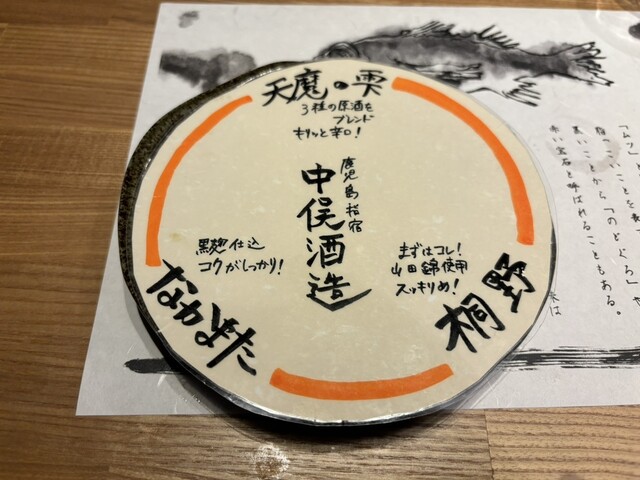 天魔の雫
3種の原酒を
ブレンド
キリッと辛口!
鹿児島指宿
中俣酒造
黒麹仕込
コクがしっかり!
なかまた
まずはコレ!
山田錦使用
スッキリめ!
桐野
「ムツ」と
赤い宝石と呼ばれることも
黒いことから「のどぐろ」や
もある。